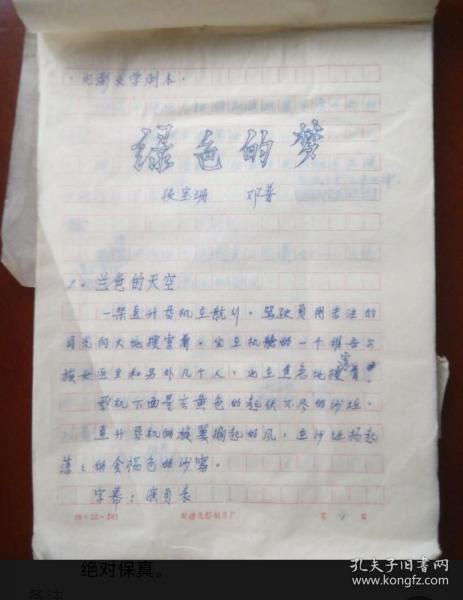 ·电影文学剧本·
绿色的梦
张宝珊 邓普
1.兰色的天空
一架直升飞机在航行。驾驶员用书法的
目光向大地搜索着。坐在机舱的一个维吾尔
族女医生和另外几个人,也在焦急地搜索着。
飞机下面是金黄色的起伏不尽的沙垣。
直升飞机的旋翼搧起的风,在沙垣扬起
落上的金褐色的沙雾。
字幕:演员表
19×15=285
新疆电影制片厂
第 1 页
绝对保真。
备注
孔夫子旧书网
www.kongfz.com